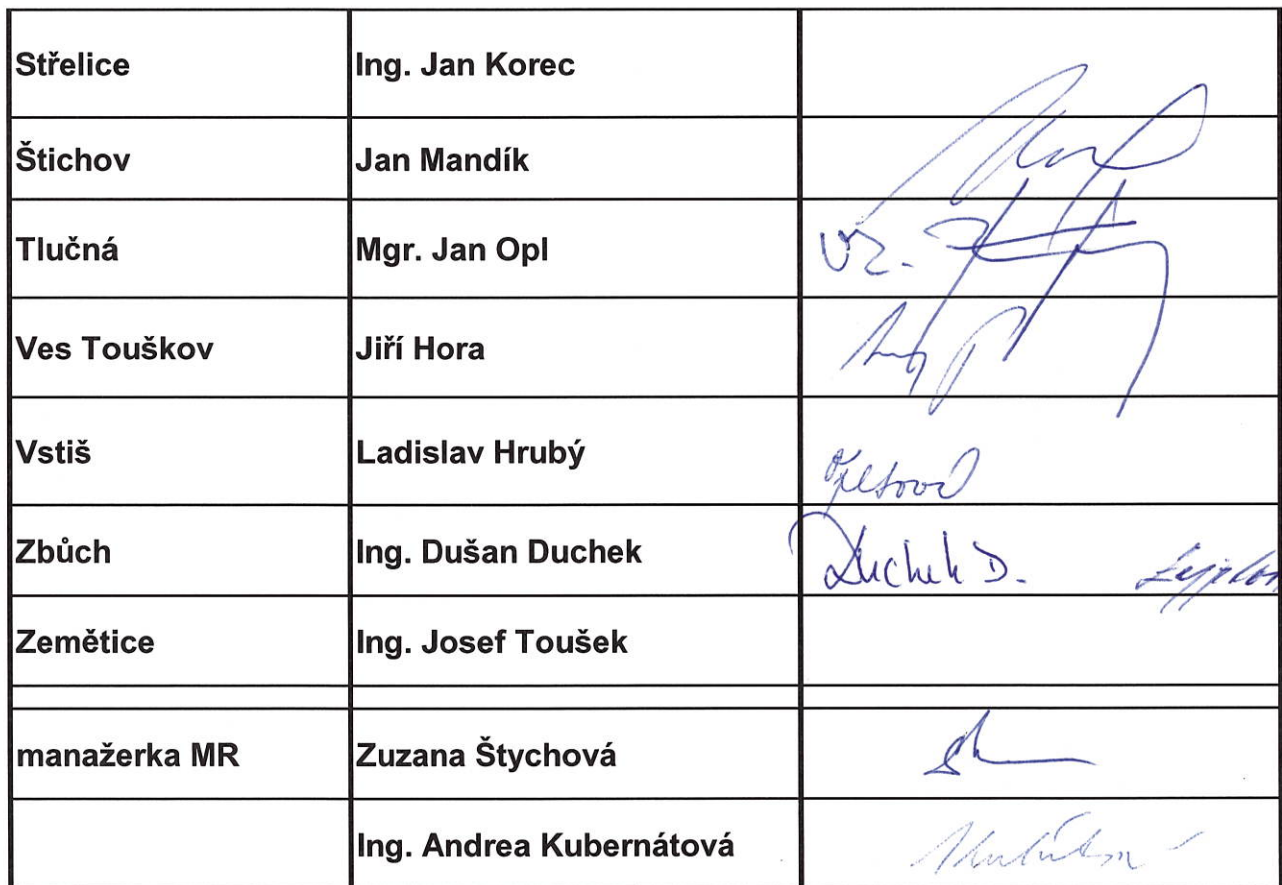 Střelice Ing. Jan Korec
Štichov Jan Mandík
Tlučná Mgr. Jan Opl
Ves Touškov Jiří Hora
Vstiš Ladislav Hrubý
Zbůch Ing. Dušan Duchek Duchek D.
Zemětice Ing. Josef Toušek
manažerka MR Zuzana Štychová
Ing. Andrea Kubernátová